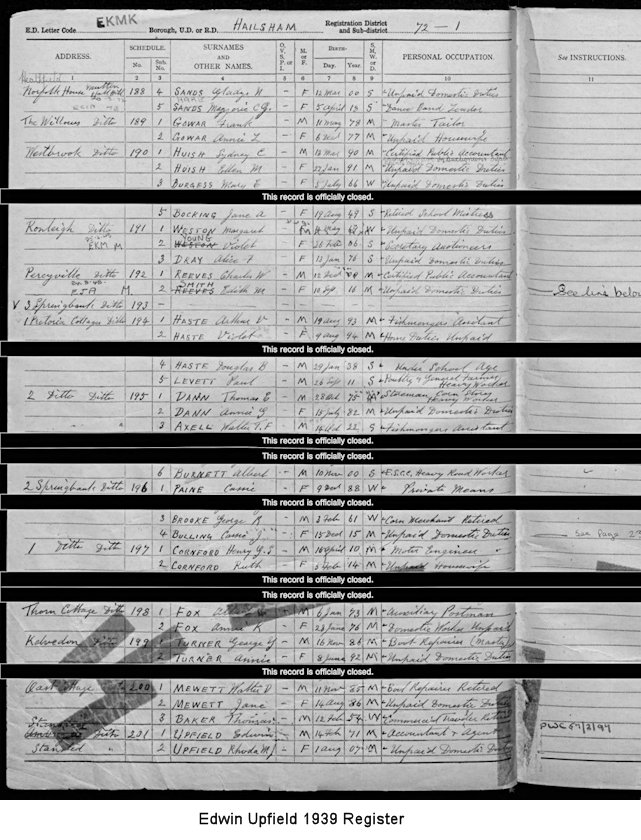 E.D. Letter Code EKMK Borough, U.D. or R.D. HAILSHAM Registration District and Sub-district 72 - 1
ADDRESS. SCHEDULE. No. Sub. No. SURNAMES AND OTHER NAMES. O. V. S. P. or I. M. or F. BIRTH— Day. Year. S. M. W. or D. PERSONAL OCCUPATION. See INSTRUCTIONS.
1 2 3 4 5 6 7 8 9 10 11
Heathfield
Norfolk House 188 4 SANDS Gladys N - F 12 Mar 00 S Unpaid Domestic Duties
5 SANDS Marjorie C G - F 5 April 13 S Dance Band Leader
The Willows Ditto 189 1 GOWAR Frank - M 11 May 78 M Master Tailor
2 GOWAR Annie L - F 6 Dec 77 M Unpaid Housewife
Westbrook Ditto 190 1 HUISH Sydney C - M 18 Mar 90 M Certified Public Accountant
2 HUISH Ellen M - F 22 Jan 91 M Unpaid Domestic Duties
3 BURGESS Mary E - F 5 July 66 W Unpaid Domestic Duties
This record is officially closed.
5 BOCKING Jane A - F 19 Aug 49 S Retired School Mistress
Ronleigh Ditto 191 1 WESTON Margaret Unpaid Domestic Duties
YOUNG
EKM M 2 WESTON Violet - F 26 Feb 06 S Secretary Auctioneers
3 DRAY Alice F - F 13 Jan 76 S Unpaid Domestic Duties
Percyville Ditto 192 1 REEVES Charles W - M 12 Dec M Certified Public Accountant
SMITH
M 2 REEVES Edith M - F 10 Sep 16 M Unpaid Domestic Duties See line below
V 3 Springbank Ditto 193 —
1 Pretoria Cottages Ditto 194 1 HASTE Arthur V - M 19 Aug 93 M Fishmongers Assistant
2 HASTE Violet - F 9 Aug 94 M Home Duties Unpaid
This record is officially closed.
4 HASTE Douglas B - M 29 Jan 38 S Under School Age
5 LEVETT Paul - M 26 Sept 11 S Poultry & General Farmer Heavy Worker
2 Ditto Ditto 195 1 DANN Thomas E - M 28 Oct 75 M Storeman Corn Stores Heavy Worker
2 DANN Annie G - F 15 July 82 M Unpaid Domestic Duties
3 AXELL Walter T. F - M 14 Oct 22 S Fishmongers Assistant
This record is officially closed.
This record is officially closed.
6 BURNETT Albert - M 10 Nov 00 S E.S.C.C. Heavy Road Worker
2 Springbank Ditto 196 1 PAINE Cassie - F 9 Dec 88 W Private Means
This record is officially closed.
3 BROOKE George R - M 3 Feb 61 W Corn Merchant Retired
4 BULLING Cassie J - F 15 Dec 15 M Unpaid Domestic Duties See Page 2
1 Ditto Ditto 197 1 CORNFORD Henry G.S - M 16 April 10 M Motor Engineer
2 CORNFORD Ruth - F 5 Feb 14 M Unpaid Housewife
This record is officially closed.
This record is officially closed.
Thorn Cottage Ditto 198 1 FOX - M 6 Jan 73 M Auxiliary Postman
2 FOX Annie K - F 23 June 76 M Domestic Worker Unpaid
Kelvedon Ditto 199 1 TURNER George Y - M 16 Nov 86 M Boot Repairer (Master)
2 TURNER Annie - F 8 June 92 M Unpaid Domestic Duties
This record is officially closed.
Oast Cottage Ditto 200 1 MEWETT Walter D - M 11 Nov 65 M Boot Repairer Retired
2 MEWETT Jane - F 14 Aug 86 M Unpaid Domestic Duties
3 BAKER Thomas - M 12 Feb 54 W Commercial Traveller Retired
Ditto 201 1 UPFIELD Edwin - M 14 Feb 71 M Accountant & Agent
Standed " 2 UPFIELD Rhoda M - F 1 Aug 07 M Unpaid Domestic Duties
Edwin Upfield 1939 Register